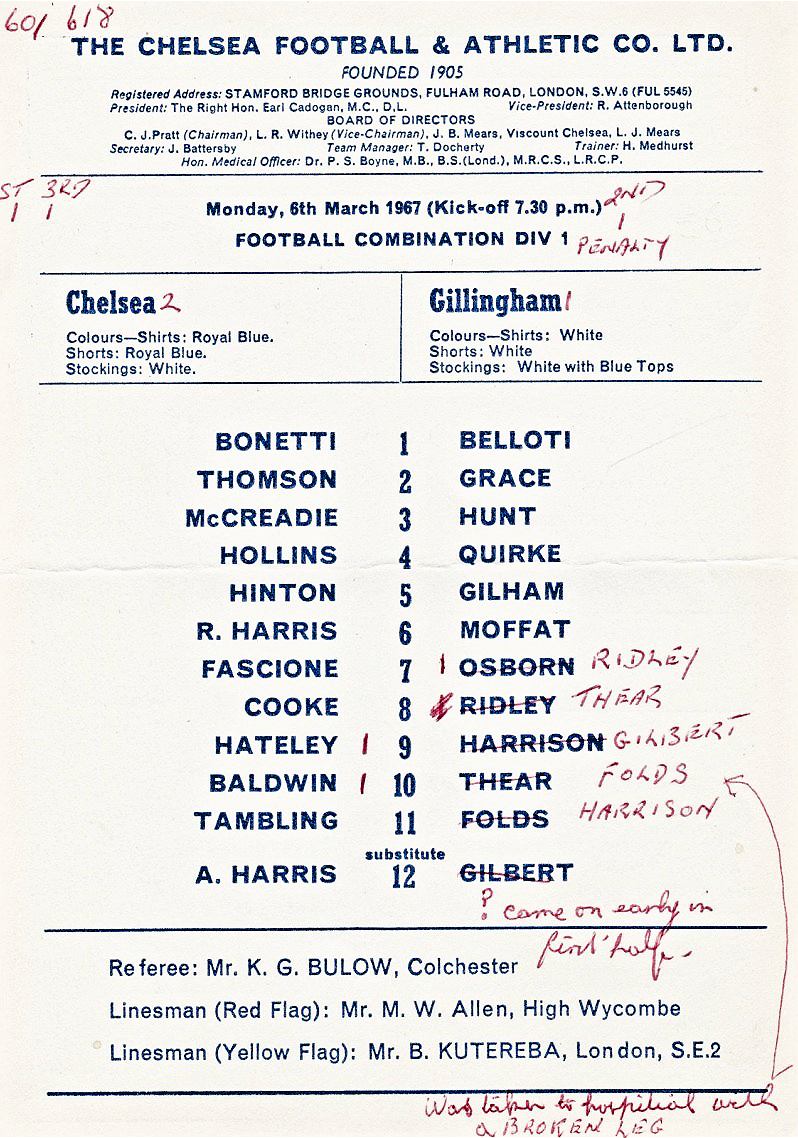 60/ 618
THE CHELSEA FOOTBALL & ATHLETIC CO. LTD.
FOUNDED 1905
Registered Address: STAMFORD BRIDGE GROUNDS, FULHAM ROAD, LONDON, S.W.6 (FUL 5545)
President: The Right Hon. Earl Cadogan, M.C., D.L. Vice-President: R. Attenborough
BOARD OF DIRECTORS
C. J. Pratt (Chairman), L. R. Withey (Vice-Chairman), J. B. Mears, Viscount Chelsea, L. J. Mears
Secretary: J. Battersby Team Manager: T. Docherty Trainer: H. Medhurst
Hon. Medical Officer: Dr. P. S. Boyne, M.B., B.S.(Lond.), M.R.C.S., L.R.C.P.
ST 3RD
1 1
Monday, 6th March 1967 (Kick-off 7.30 p.m.) 2ND
1
FOOTBALL COMBINATION DIV 1 PENALTY
Chelsea 2 Gillingham 1
Colours—Shirts: Royal Blue. Colours—Shirts: White
Shorts: Royal Blue. Shorts: White
Stockings: White. Stockings: White with Blue Tops
BONETTI 1 BELLOTI
THOMSON 2 GRACE
McCREADIE 3 HUNT
HOLLINS 4 QUIRKE
HINTON 5 GILHAM
R. HARRIS 6 MOFFAT
FASCIONE 7 1 OSBORN RIDLEY
COOKE 8 RIDLEY THEAR
HATELEY 1 9 HARRISON GILBERT
BALDWIN 1 10 THEAR FOLDS
TAMBLING 11 FOLDS HARRISON
substitute
A. HARRIS 12 GILBERT
? came on early in
first half.
Referee: Mr. K. G. BULOW, Colchester
Linesman (Red Flag): Mr. M. W. Allen, High Wycombe
Linesman (Yellow Flag): Mr. B. KUTEREBA, London, S.E.2
Was taken to hospital with
a BROKEN LEG